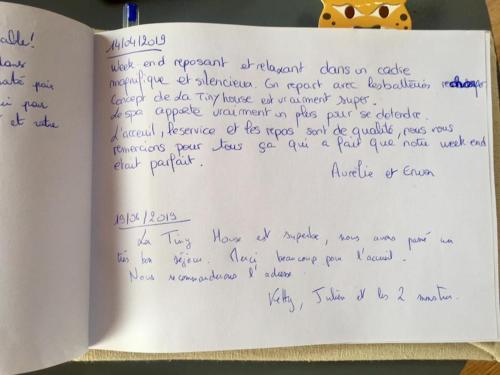 able!
dans
pour
et votre
14/04/2019
Week-end reposant et relaxant dans un cadre
magnifique et silencieux. On repart avec les batteries
Concept de La Tiny house est vraiment super.
Le spa apporte vraiment un plus pour se detendre.
L'acceuil, le service et les repas sont de qualité, nous vous
remercions pour tous ça qui a fait que notre week-end
était parfait.
Aurélie et Erwan
19/04/2019
La Tiny House est superbe, nous avons passé un
très bon séjour. Merci beaucoup pour l'accueil.
Nous recommanderons l'adresse
Ketty, Julien et les 2 monstres.